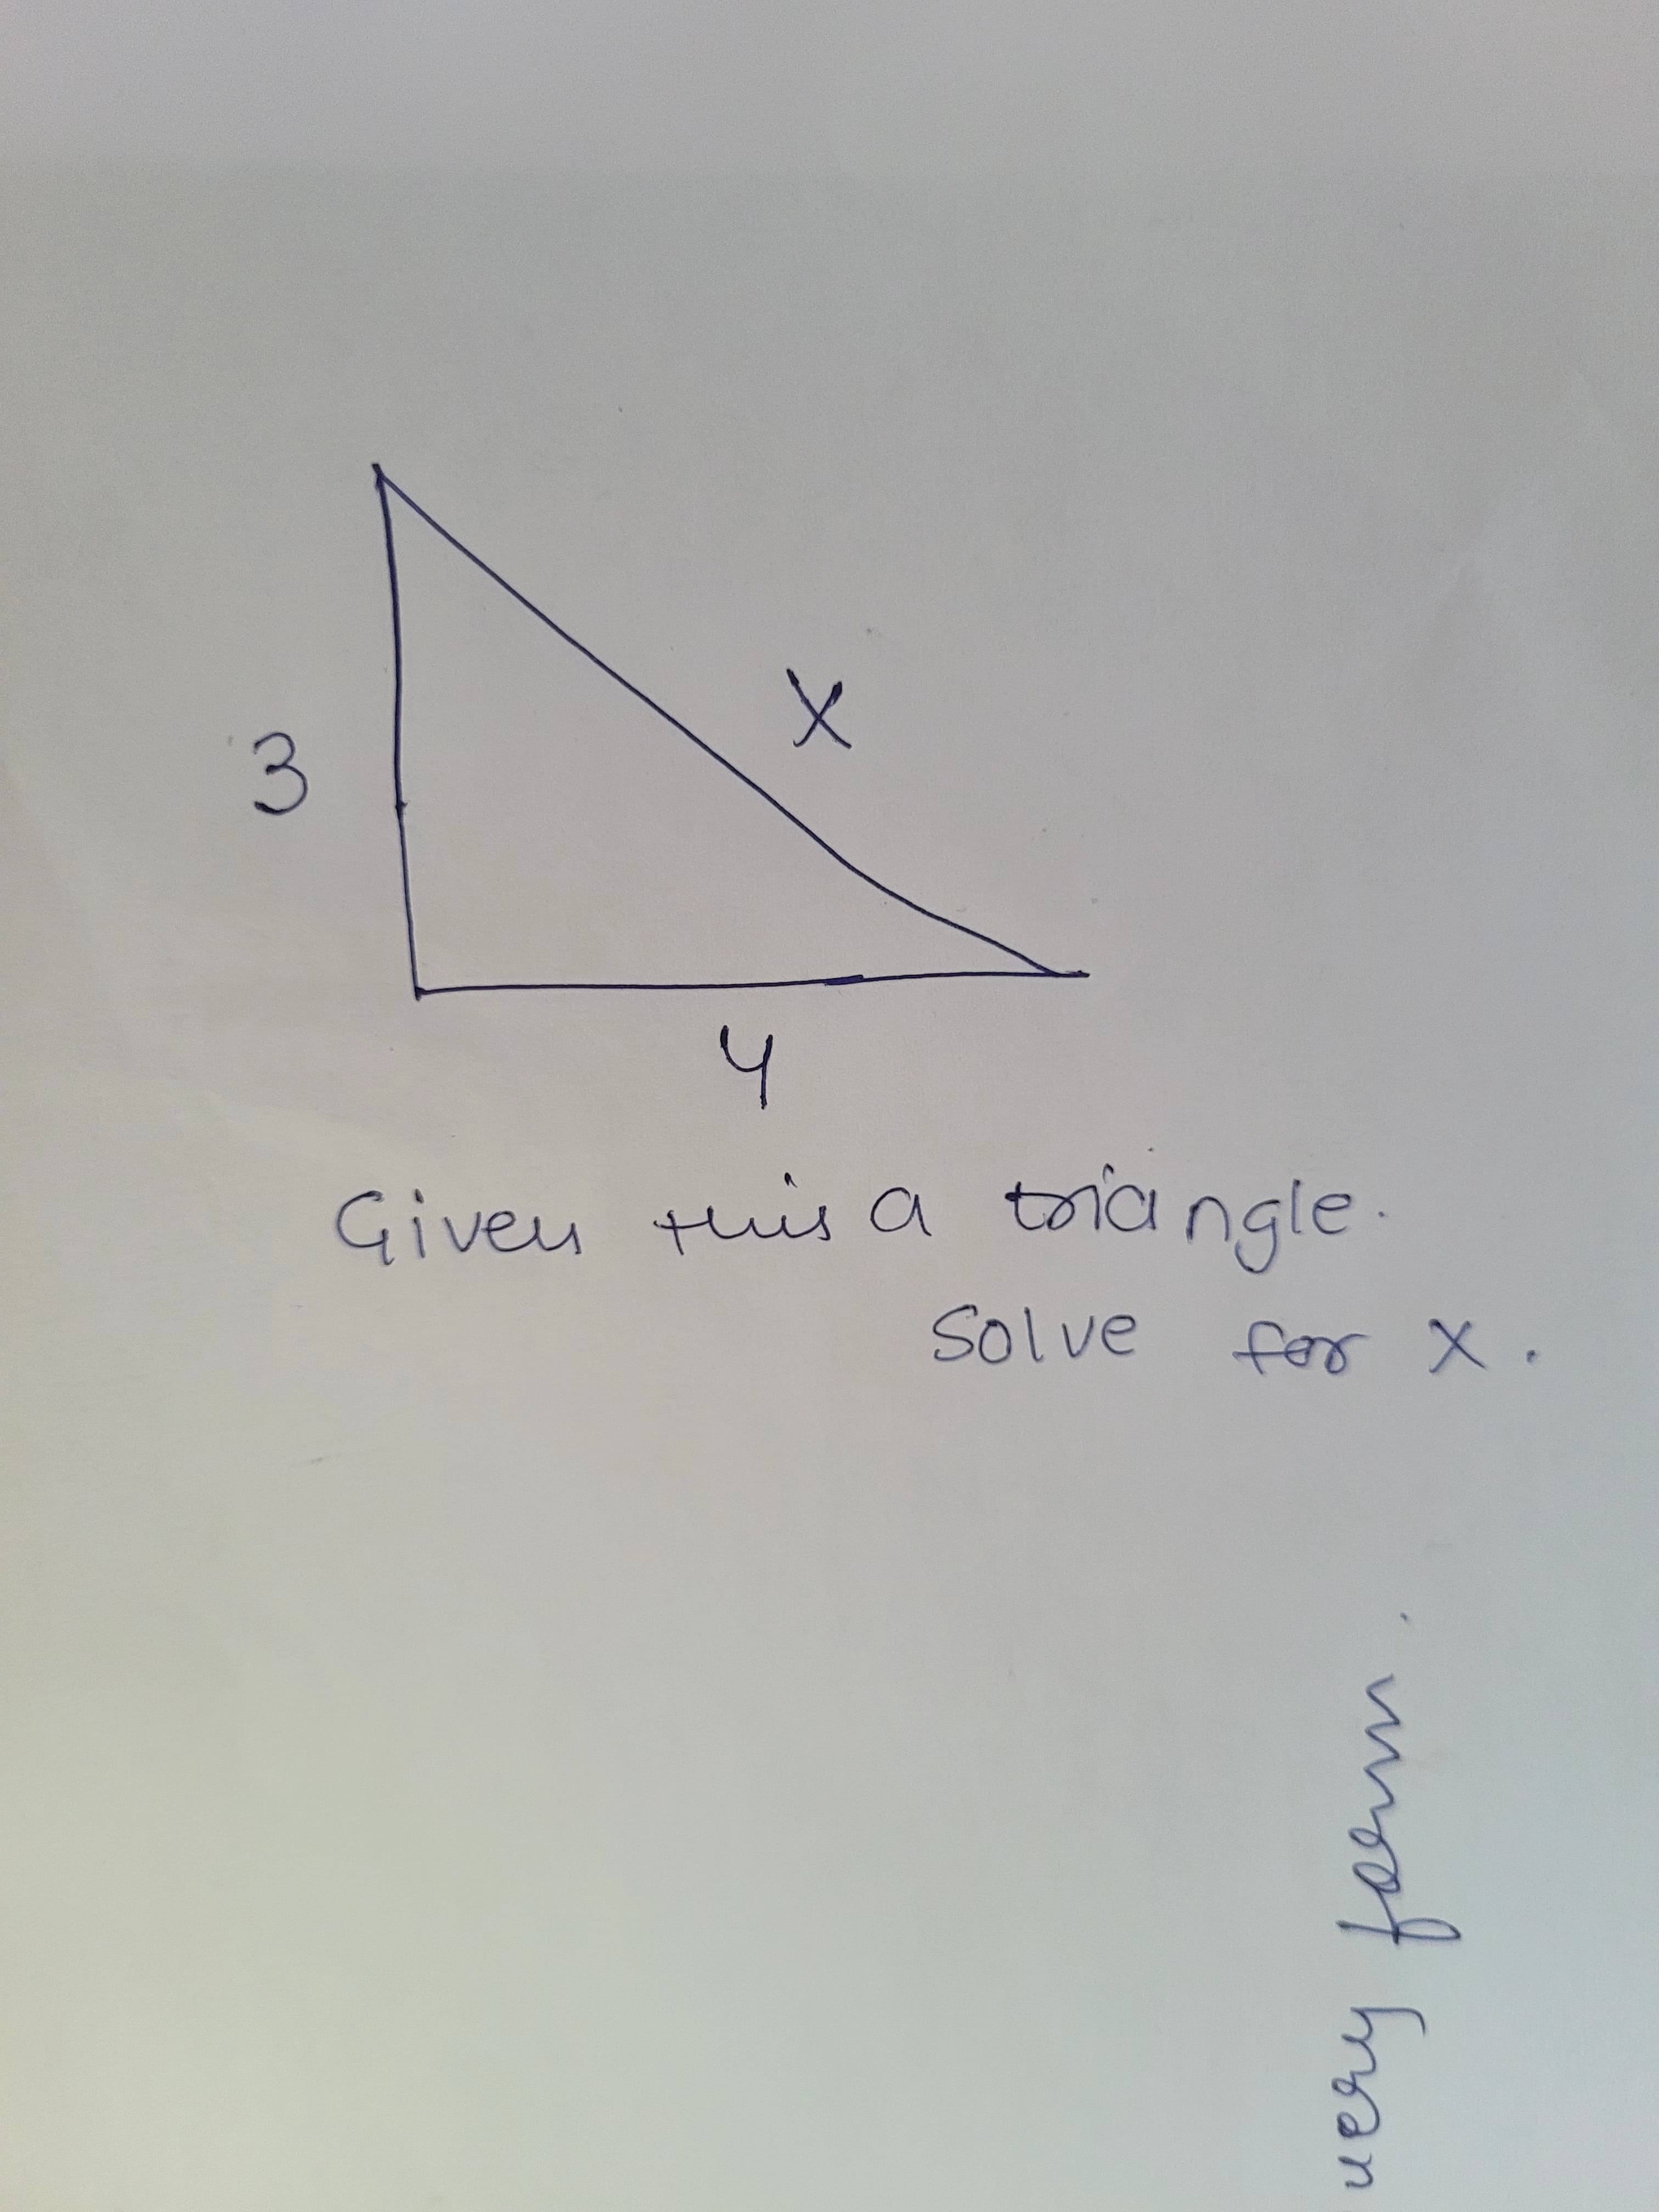 3
X
4
Given this a triangle.
Solve for x.
very form.